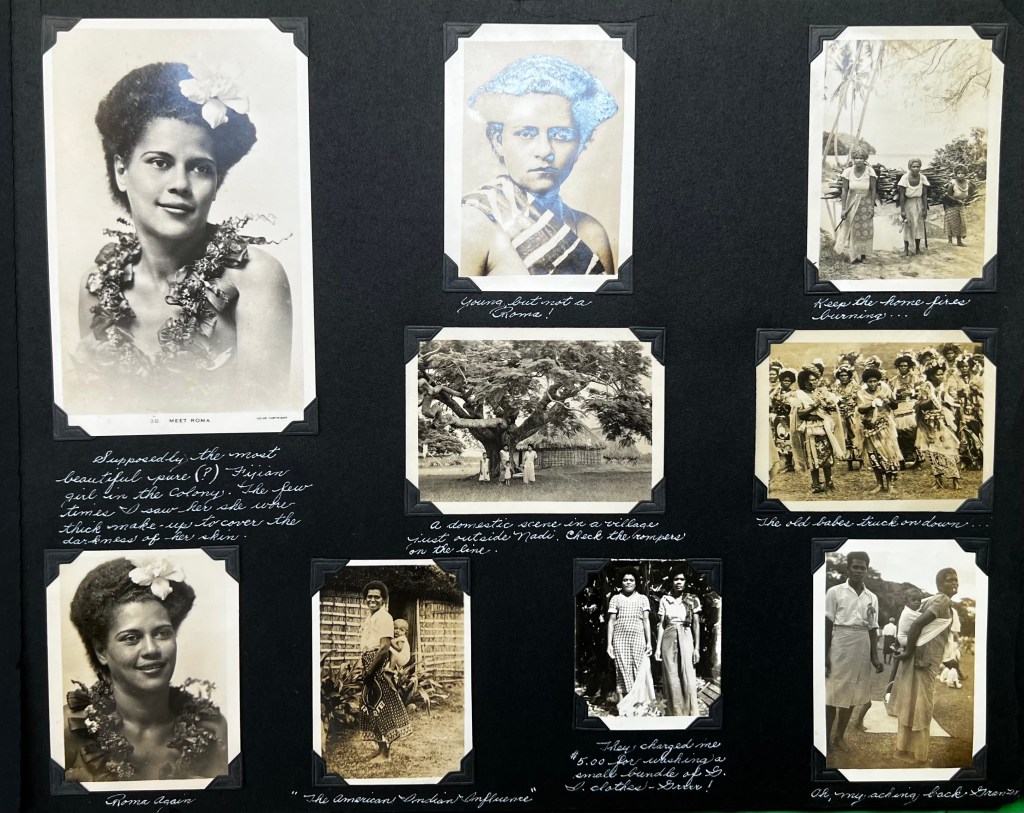 20. MEET ROMA
Supposedly the most
beautiful pure (?) Fijian
girl in the colony. The few
times I saw her she wore
thick make-up to cover the
darkness of her skin.
Young, but not a
Roma!
Keep the home fires
burning...
A domestic scene in a village
just outside Nadi. Check the rompers
on the line.
The old babes truck on down...
Roma Again
"The American Indian Influence"
They charged me
$5.00 for washing a
small bundle of G.
I. clothes - Grrr!
Oh, my aching back -